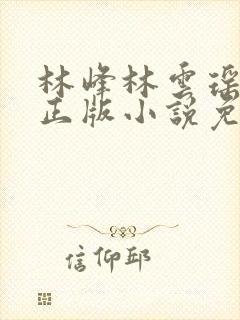 林峰林雲瑶
正版小説免
信仰邱